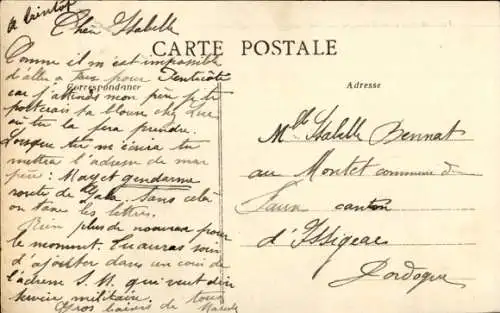 a bientôt
Chère Isabelle
CARTE POSTALE
Correspondance
Adresse
Comme il m'est impossible
d'aller a pour Pentecôte
car j'attends mon père je te
porterais ta blouse chez
où tu la fera prendre.
Lorsque tu m'écrira tu
mettra l'adresse de mon
père : Mayet gendarme
route de Sans cela
on taxe les lettres.
Rien plus de nouveau pour
le moment. Tu auras soin
d'ajouter dans un coin de
l'adresse S. M. qui veut dire
service militaire.
Gros baisers de tous
Melle Isabelle Bennat
au Montet commune de
Faux canton
d'Issigeac
Dordogne